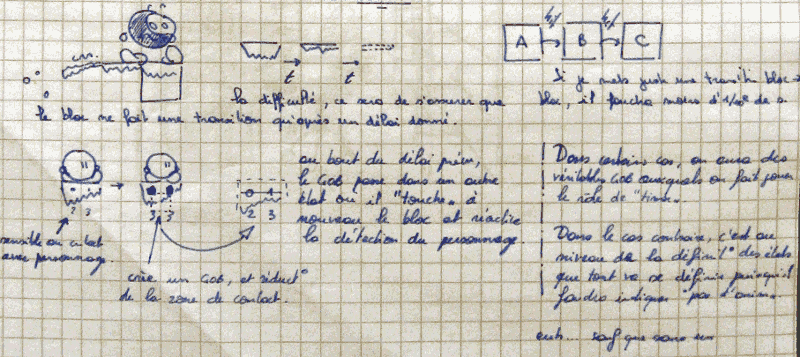 A B C
t t
Si je mets juste une transition bloc →
bloc, il faudra moins d'1/20° de s.
la difficulté, ce sera de s'assurer que
le bloc ne fait une transition qu'après un délai donné.
au bout du délai prévu,
le GOB passe dans un autre
état où il "touche" à
nouveau le bloc et réactive
la détection du personnage.
2 3
3 3
0 1
2 3
sensible au contact
avec personnage.
crée un GOB, et réduct°
de la zone de contact.
Dans certains cas, on aura des
véritables GOB auxquels on fait jouer
le rôle de "timer".
Dans le cas contraire, c'est au
niveau de la définit° des états
que tout va se définir puisqu'il
faudra indiquer "pas d'anim".
euh... sauf que sans un